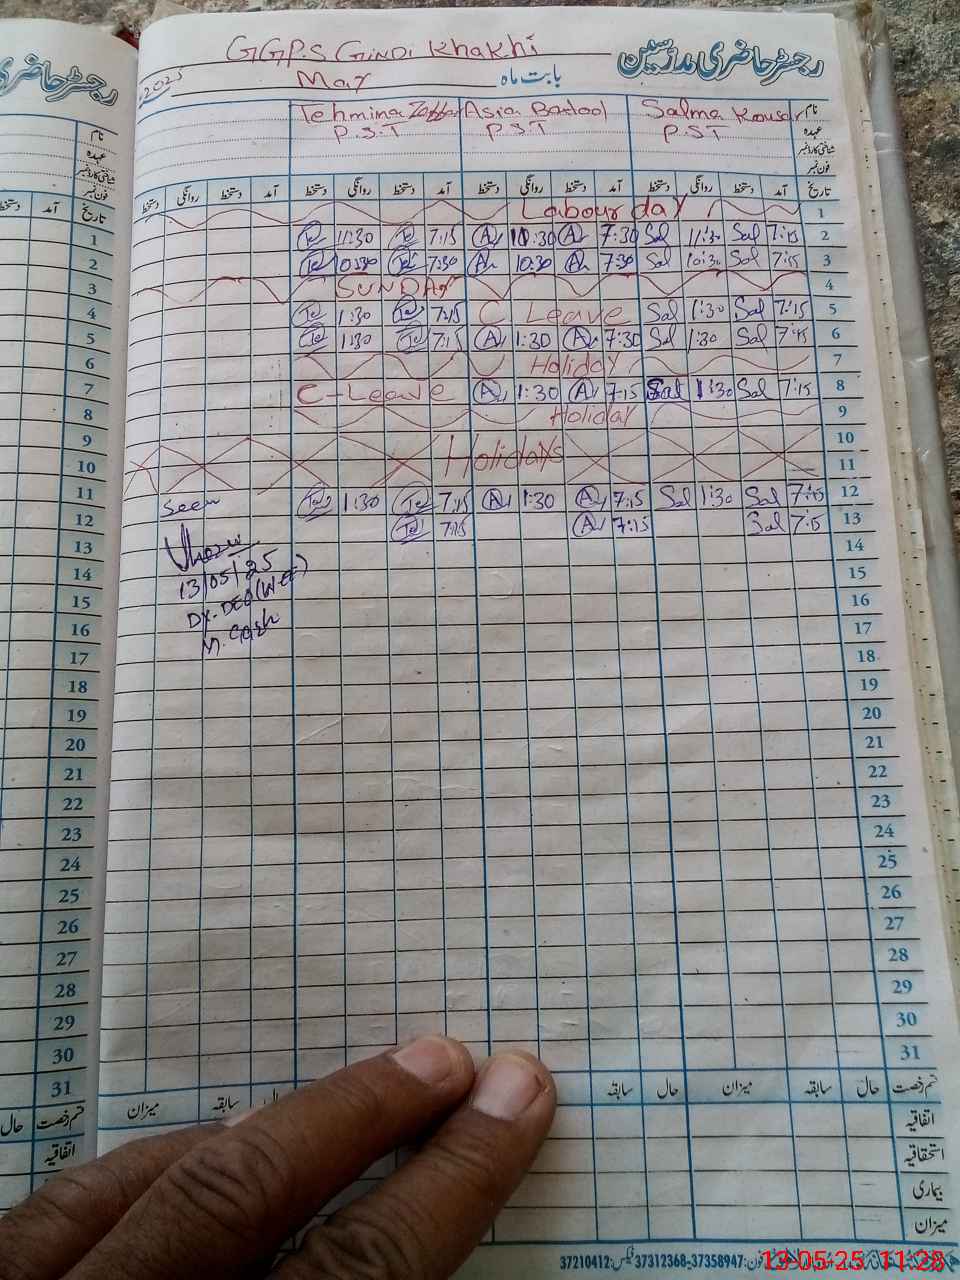 G.G.P.S GINDI Khakhi
رجسٹر حاضری مدرسین
2025
May بابت ماہ
Tehmina Asia Batool Salma Kousar نام
P.S.T P.S.T P.ST عہدہ
شناختی کارڈ نمبر
فون نمبر
دستخط روانگی دستخط آمد دستخط روانگی دستخط آمد دستخط روانگی دستخط آمد دستخط روانگی دستخط آمد تاریخ
Labour day 1
11:30 7:15 10:30 7:30 Sal 11:30 Sal 7:15 2
10:30 7:30 10:30 7:30 Sal 10:30 Sal 7:15 3
SUNDAY 4
1:30 7:15 C Leave Sal 1:30 Sal 7:15 5
1:30 7:15 1:30 7:30 Sal 1:30 Sal 7:15 6
Holiday 7
C-Leave 1:30 7:15 Sal 1:30 Sal 7:15 8
Holiday 9
10
Holidays
11
Seen 1:30 7:15 1:30 7:15 Sal 1:30 Sal 7:15 12
7:15 7:15 Sal 7:15 13
13/05/25
14
15
16
17
18
19
20
21
22
23
24
25
26
27
28
29
30
31
میزان سابقہ حال سابقہ حال میزان سابقہ حال قسم رخصت
اتفاقیہ
استحقاقیہ
بیماری
میزان
فون: 37358947-37312368 فیکس: 37210412
13-05-25 11:28
رجسٹر حاضری
نام
عہدہ
شناختی کارڈ نمبر
فون نمبر
دستخط آمد تاریخ
1
2
3
4
5
6
7
8
9
10
11
12
13
14
15
16
17
18
19
20
21
22
23
24
25
26
27
28
29
30
31
حال قسم رخصت
اتفاقیہ